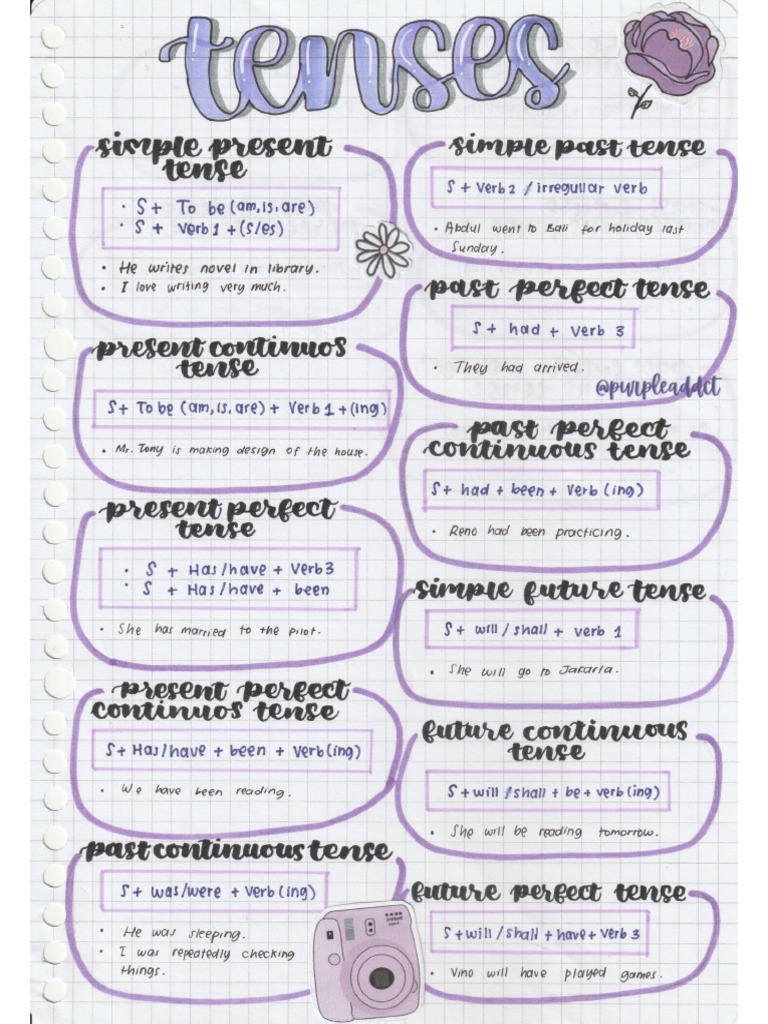 tenses
simple present
tense
· S + To be (am, is, are)
· S + Verb 1 + (s/es)
• He writes novel in library.
• I love writing very much.
present continuos
tense
S + To be (am, is, are) + Verb 1 + (ing)
• Mr. Tony is making design of the house.
present perfect
tense
· S + Has/have + Verb 3
· S + Has/have + been
• She has married to the pilot.
present perfect
continuos tense
S + Has/have + been + Verb (ing)
• We have been reading.
past continuous tense
S + was/were + Verb (ing)
• He was sleeping.
• I was repeatedly checking
things.
simple past tense
S + Verb 2 / irregullar verb
• Abdul went to Bali for holiday last
Sunday.
past perfect tense
S + had + Verb 3
• They had arrived.
@purpleaddct
past perfect
continuous tense
S + had + been + Verb (ing)
• Reno had been practicing.
simple future tense
S + will / shall + verb 1
• She will go to Jakarta.
future continuous
tense
S + will / shall + be + verb (ing)
• She will be reading tomorrow.
future perfect tense
S + will / shall + have + verb 3
• Vino will have played games.